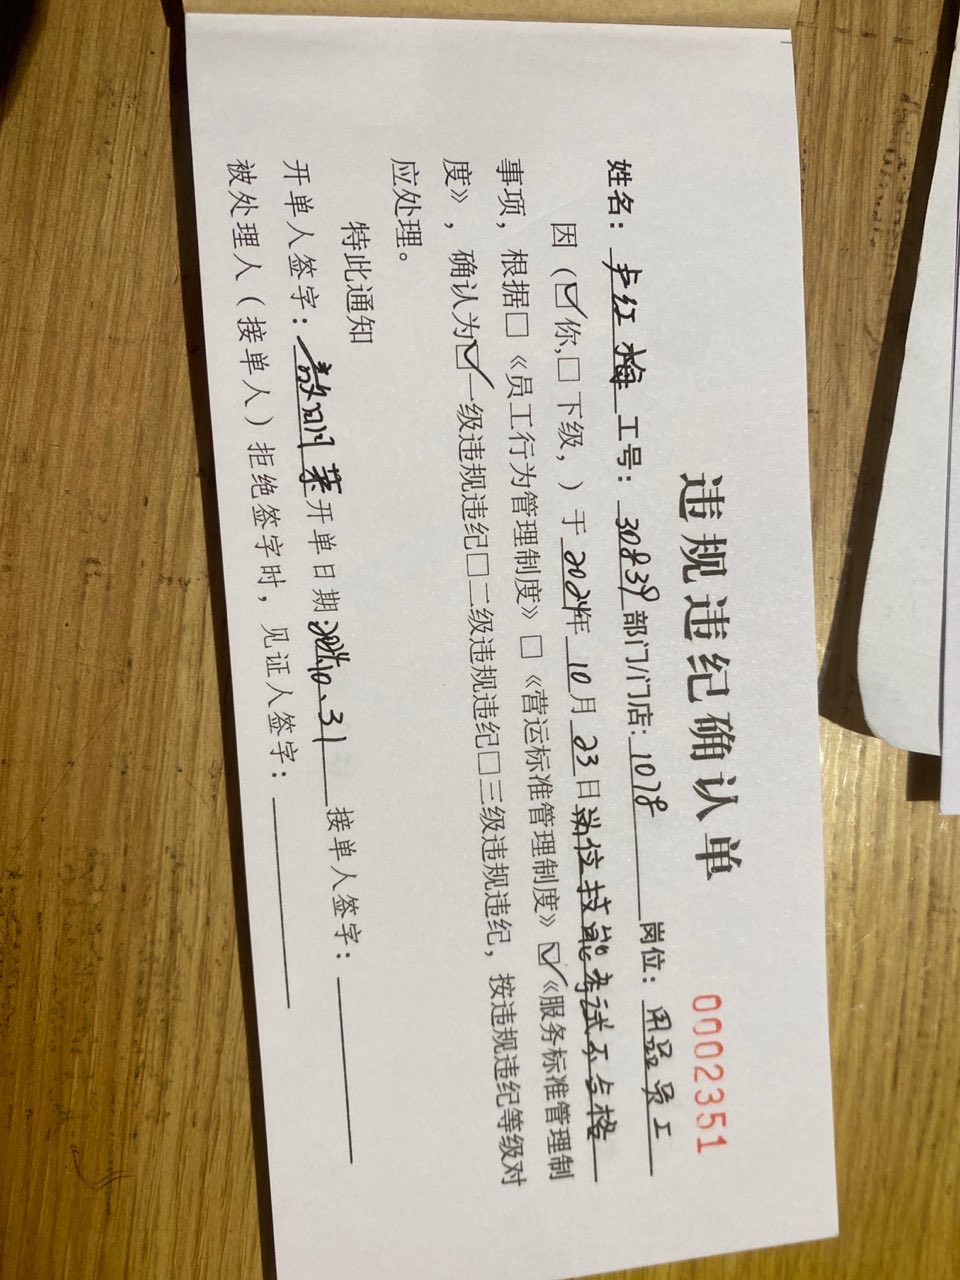 违规违纪确认单
00002351
姓名：卢红梅 工号：30839 部门/门店：1078 岗位：用品员工
因（☑你，□下级，）于2024年10月23日岗位技能考试不合格
事项，根据□《员工行为管理制度》□《营运标准管理制度》☑《服务标准管理制
度》，确认为☑一级违规违纪□二级违规违纪□三级违规违纪，按违规违纪等级对
应处理。
特此通知
开单人签字： 开单日期：2024.10.31 接单人签字：
被处理人（接单人）拒绝签字时，见证人签字：